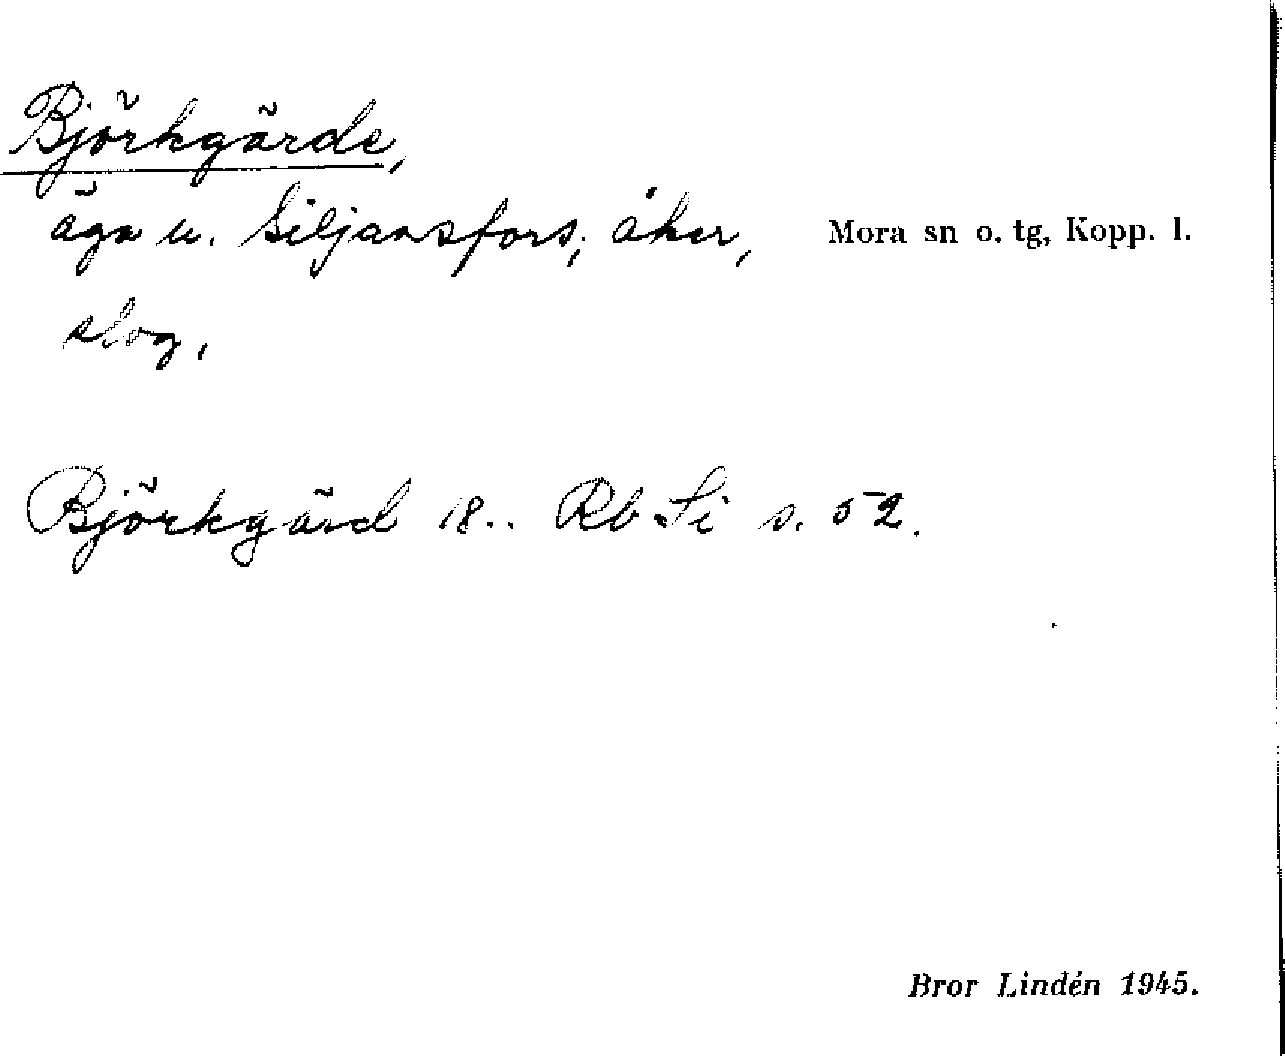 Björkgärde,
äga u. Siljansfors; åker, Mora sn o. tg, Kopp. l.
slog,
Björkgärd 18.. Rb Si s. 52.
Bror Lindén 1945.